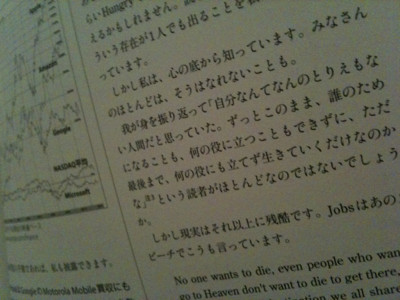 らいHungry
えるかもしれません。
ういう存在が1人でも出ることを
っています。
しかし私は、心の底から知っています。みなさん
のほとんどは、そうはなれないことも。
我が身を振り返って「自分なんてなんのとりえもな
い人間だと思っていた。ずっとこのまま、誰のため
になることも、何の役に立つこともできずに、ただ
最後まで、何の役にも立てず生きていくだけなのか
な」という読者がほとんどなのではないでしょう
か。
しかし現実はそれ以上に残酷です。Jobsはあの
ピーチでこうも言っています。
No one wants to die, even people who wan
go to Heaven don't want to die to get there.
we all share
Google
NASDAQ平均
Microsoft
私も検証できます。
GoogleのMotorola Mobile買収にも